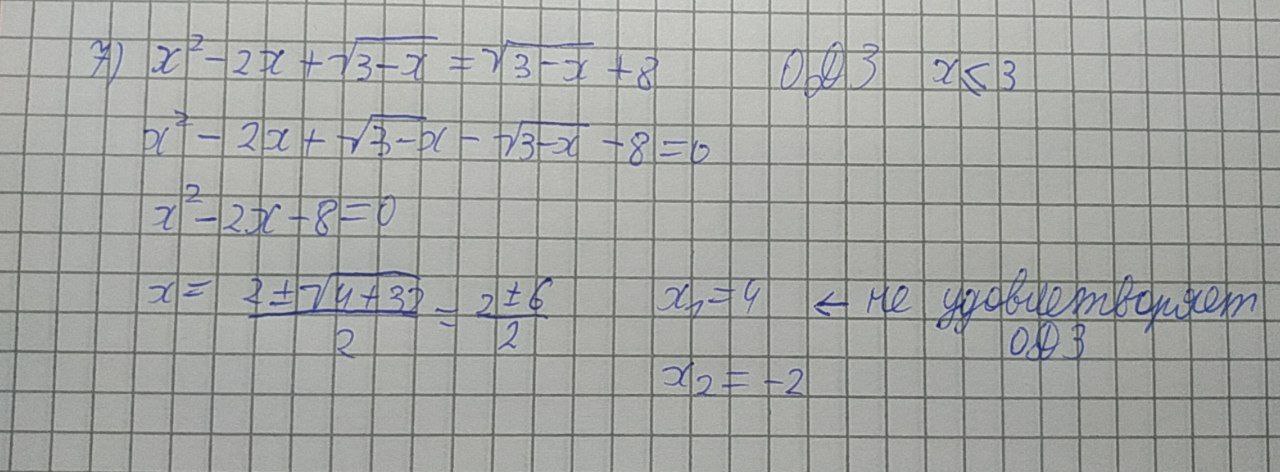 7) x² - 2x + √(3-x) = √(3-x) + 8 ОДЗ x ≤ 3
x² - 2x + √(3-x) - √(3-x) - 8 = 0
x² - 2x - 8 = 0
x = (2 ± √(4+32))/2 = (2 ± 6)/2 x₁ = 4 ← не удовлетворяет ОДЗ
x₂ = -2